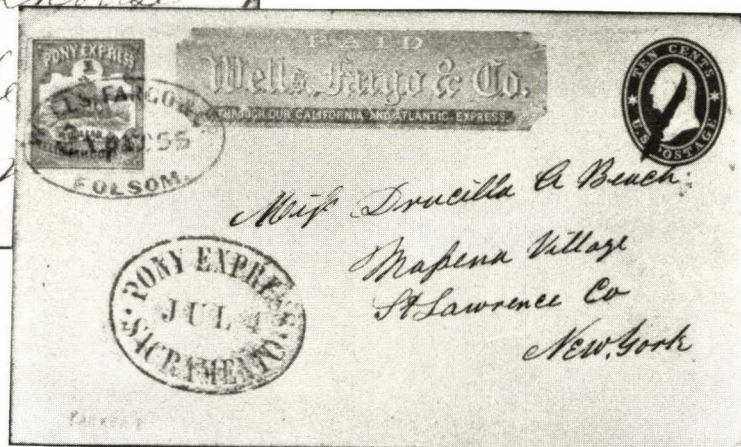 PONY EXPRESS
1
WELLS, FARGO & CO
EXPRESS
FOLSOM.
PAID
Wells, Fargo & Co.
THROUGH OUR CALIFORNIA AND ATLANTIC EXPRESS.
TEN CENTS
U.S. POSTAGE
Miss Drucilla A Beach
Massena Village
St Lawrence Co
New York
PONY EXPRESS
JUL 4
SACRAMENTO